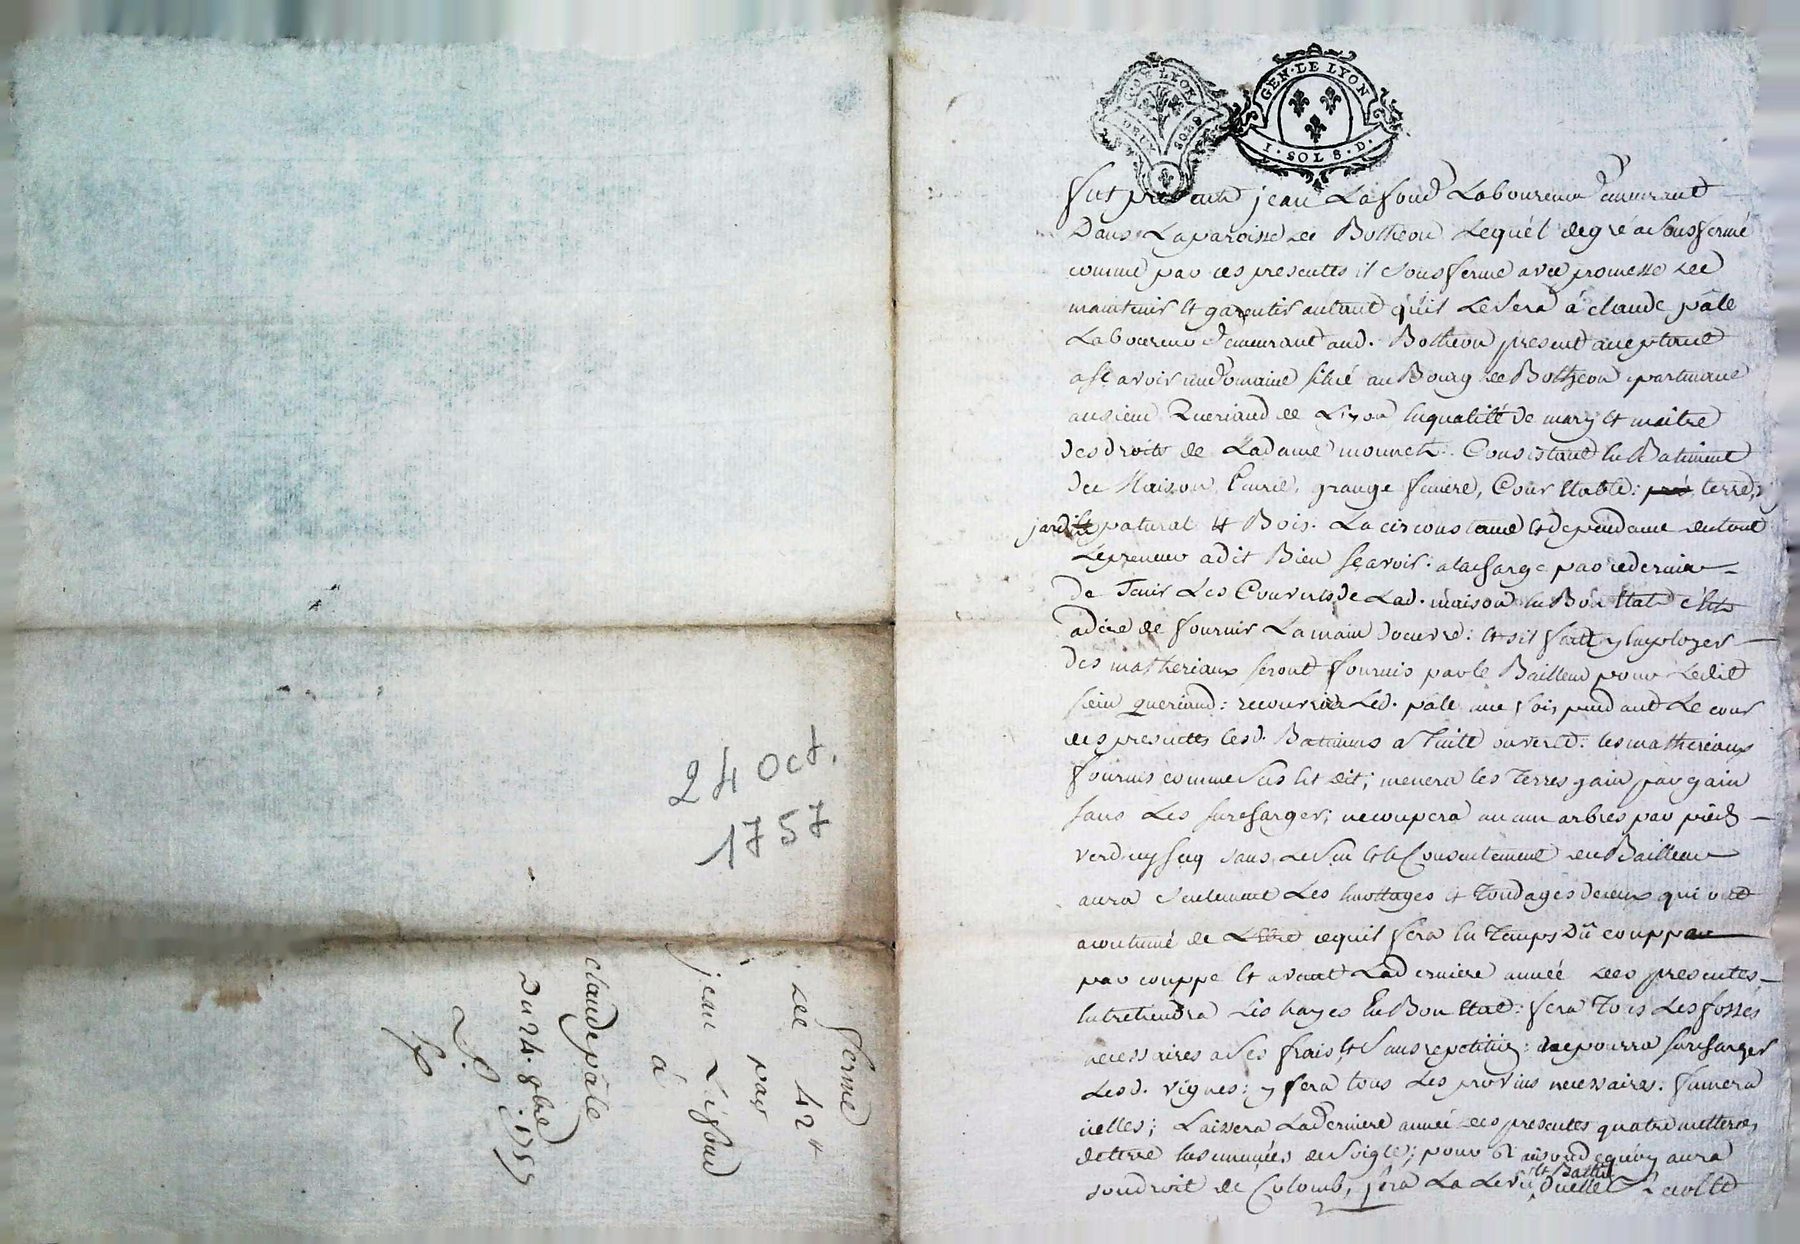 24 oct.
1757
ferme
de 42 ₶
par
jean Lafond
à
claude pâle
Du 24. 8bre 1757
GEN. DE LYON
DEUX SOLS
GEN·DE LYON
I·SOL 8·D·
fut present jean Lafond Laboureur demeurant
Dans La paroisse de Botheon Lequel de gré a sousfermé
comme par ces presentes il sous ferme avec promesse de
maintenir et garentir autant qu'il Le sera à claude pâle
Laboureur demeurant aud. Botheon present acceptant
asçavoir un domaine situé au Bourg de Botheon partenant
au sieur Queriaud de Lyon en qualité de mary et maitre
des droits de La dame Consistant en Batiment
De Maison Ecurie, grange feniere, Cour Etable: pré terre,
jardin patural et Bois. La circonstance et dependance du tout
Le preneur a dit Bien sçavoir. a la charge par ce dernier
de Tenir Les Couverts de Lad. maison en Bon Etat c'est
a dire de fournir La main d'oeuvre: et s'il faut y employer
des matheriaux seront fournis par le Bailleur pour Ledit
sieur queriaud: recourrira Led. pâle une fois pendant Le cour
des presentes lesd. Batimens a Tuile ouverte: les matheriaux
fournis comme sus est dit; menera les Terres gain par gain
sans Les surcharger; ne coupera aucun arbres par pied
verd ny secq sans Le sceu et le Consentement du Bailleur
aura seulement Les emottages et Tondages de ceux qui ont
acoutumé de L'être ce quil fera en Temps Dû couppe
par couppe et avant La derniere année des presentes,
entretiendra Les hayes En Bon Etat: fera Tous Les fosses
necessaires a ses frais et sans repetition: ne pourra surcharger
Lesd. vignes: y fera tous Les provins necessaires. fumera
icelles; Laissera La derniere année des presentes quatre metterées
de terre ensemencées de soigle; pour raison de quoy aura
son droit de Colomb, fera La Levée et Battits d'icelle Recolte